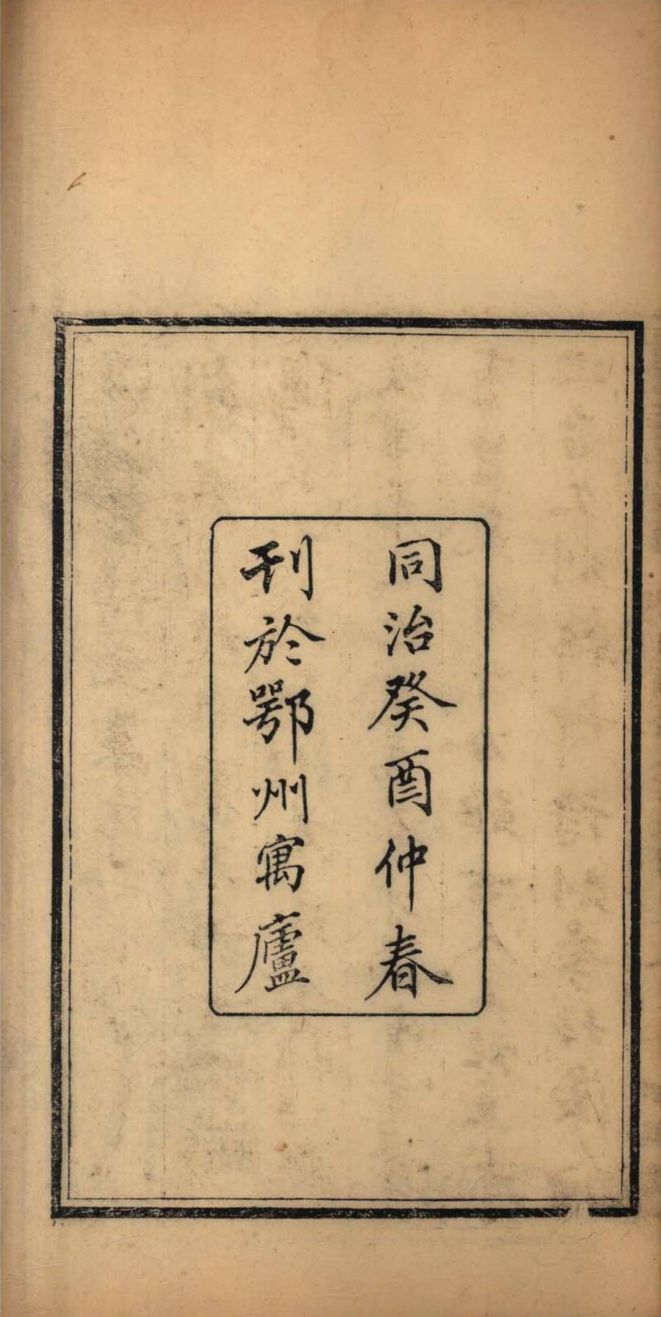 同治癸酉仲春
刊於鄂州寓廬